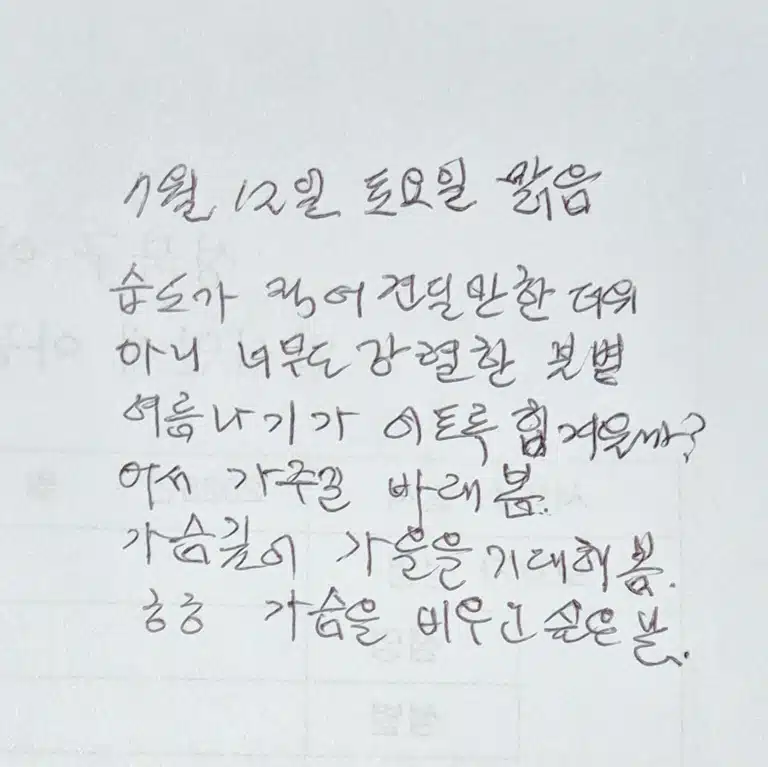 7월 12일 토요일 맑음
습도가 적어 견딜만한 더위
아니 너무도 강렬한 불볕
여름나기가 이토록 힘겨울까?
어서 가주길 바래봄.
가슴깊이 가을을 기대해 봄.
ㅎㅎ 가슴을 비우고 싶은 날.